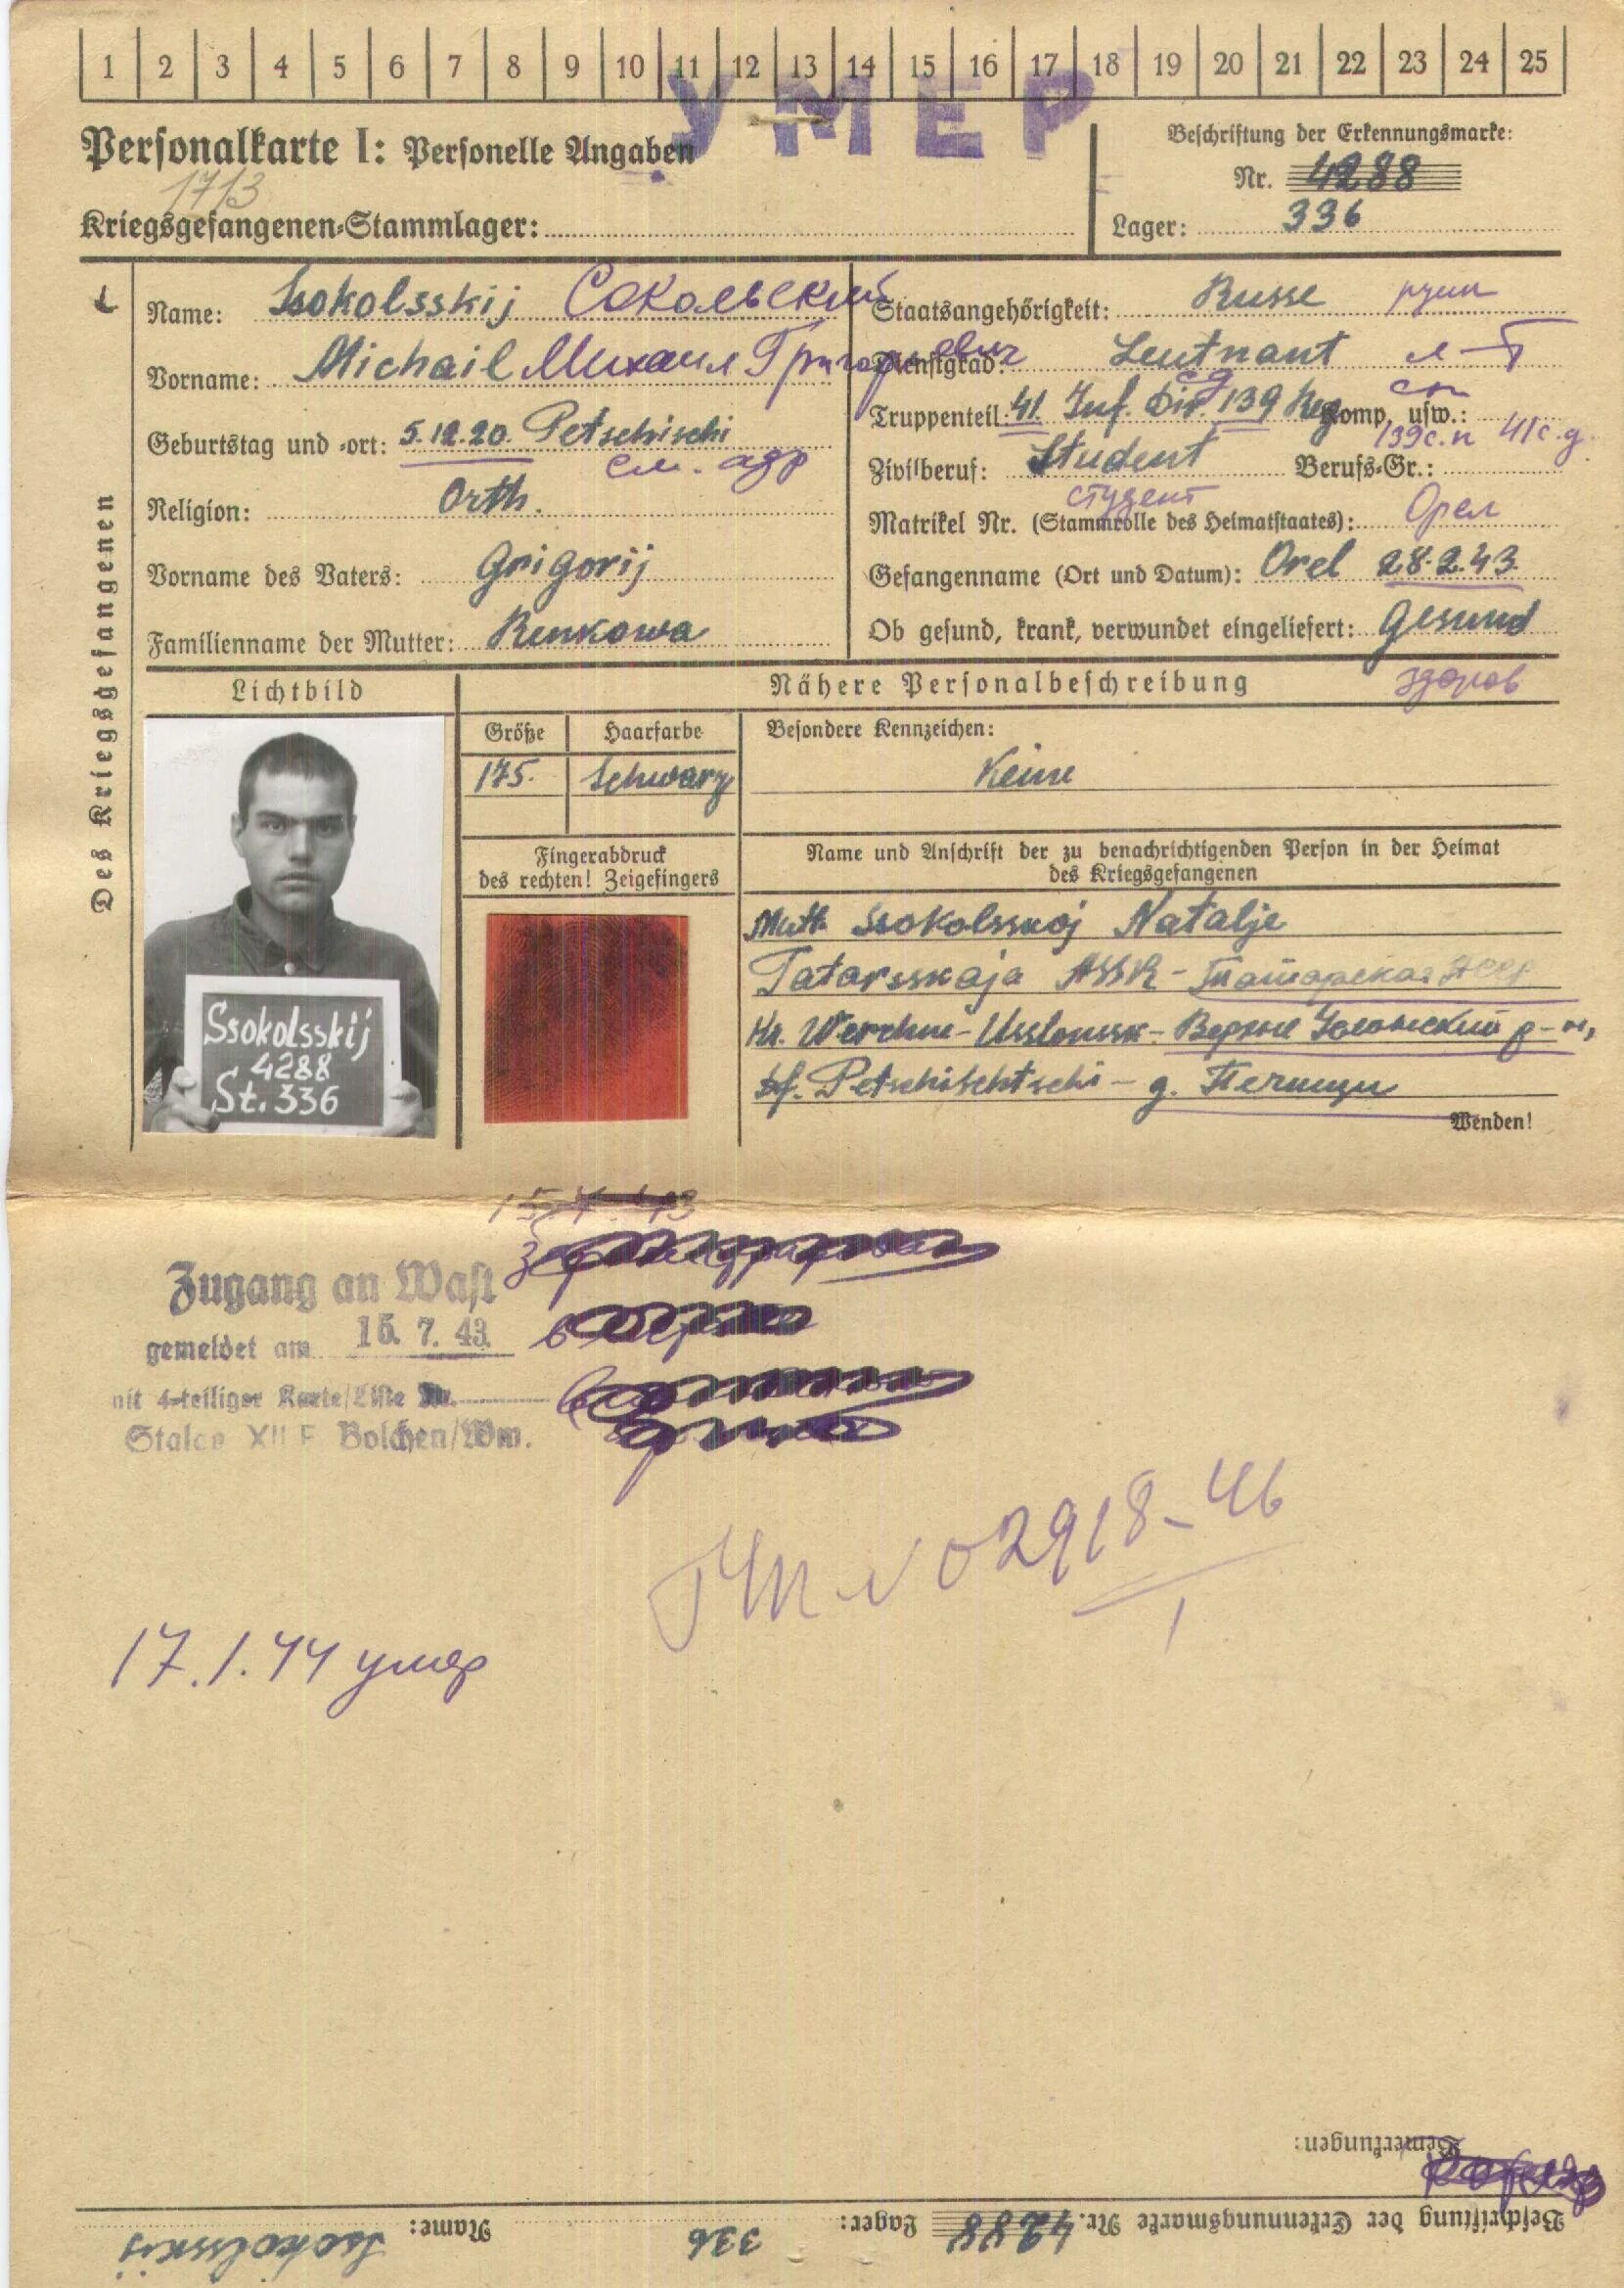 1 2 3 4 5 6 7 8 9 10 11 12 13 14 15 16 17 18 19 20 21 22 23 24 25
УМЕР
Personalkarte I: Personelle Angaben
1713
Kriegsgefangenen-Stammlager:
Beschriftung der Erkennungsmarke:
Nr. 4288
Lager: 336
Des Kriegsgefangenen
Name: Ssokolsskij Сокольский
Vorname: Michail Михаил Григорьевич
Geburtstag und -ort: 5.12.20. Petschischi
см. адр
Religion: Orth.
Vorname des Vaters: Grigorij
Familienname der Mutter: Renkowa
Staatsangehörigkeit: Russe
Dienstgrad: Leutnant л-т
сд сп
Truppenteil: 41. Inf. Div. 139 Reg Komp. usw.:
139 с.п 41 с.д.
Zivilberuf: Student Berufs-Gr.:
студент
Matrikel Nr. (Stammrolle des Heimatstaates): Орел
Gefangenname (Ort und Datum): Orel 28.2.43.
Ob gesund, krank, verwundet eingeliefert: Gesund
здоров
Lichtbild
Nähere Personalbeschreibung
Größe Haarfarbe
175. Schwarz
Besondere Kennzeichen:
Keine
Fingerabdruck
des rechten! Zeigefingers
Name und Anschrift der zu benachrichtigenden Person in der Heimat
des Kriegsgefangenen
Mutt. Ssokolsskoj Natalje
Tatarsskaja ASSR - Татарская АССР
Kr. Werchne-Usslonssk - Верхне Услонский р-н,
df. Petschischtschi - д. Печищи
Wenden!
Ssokolsskij
4288
St. 336
15.7.43
Zugang an Wast
gemeldet am 15. 7. 43.
mit 4-teiliger Karte/Liste Nr.
Stalag XII F Bolchen/Wm.
№ 02918-46
1
17.1.44 умер
Bemerkungen:
Beschriftung der Erkennungsmarke Nr. 4288 Lager: 336 Name: Ssokolsskij